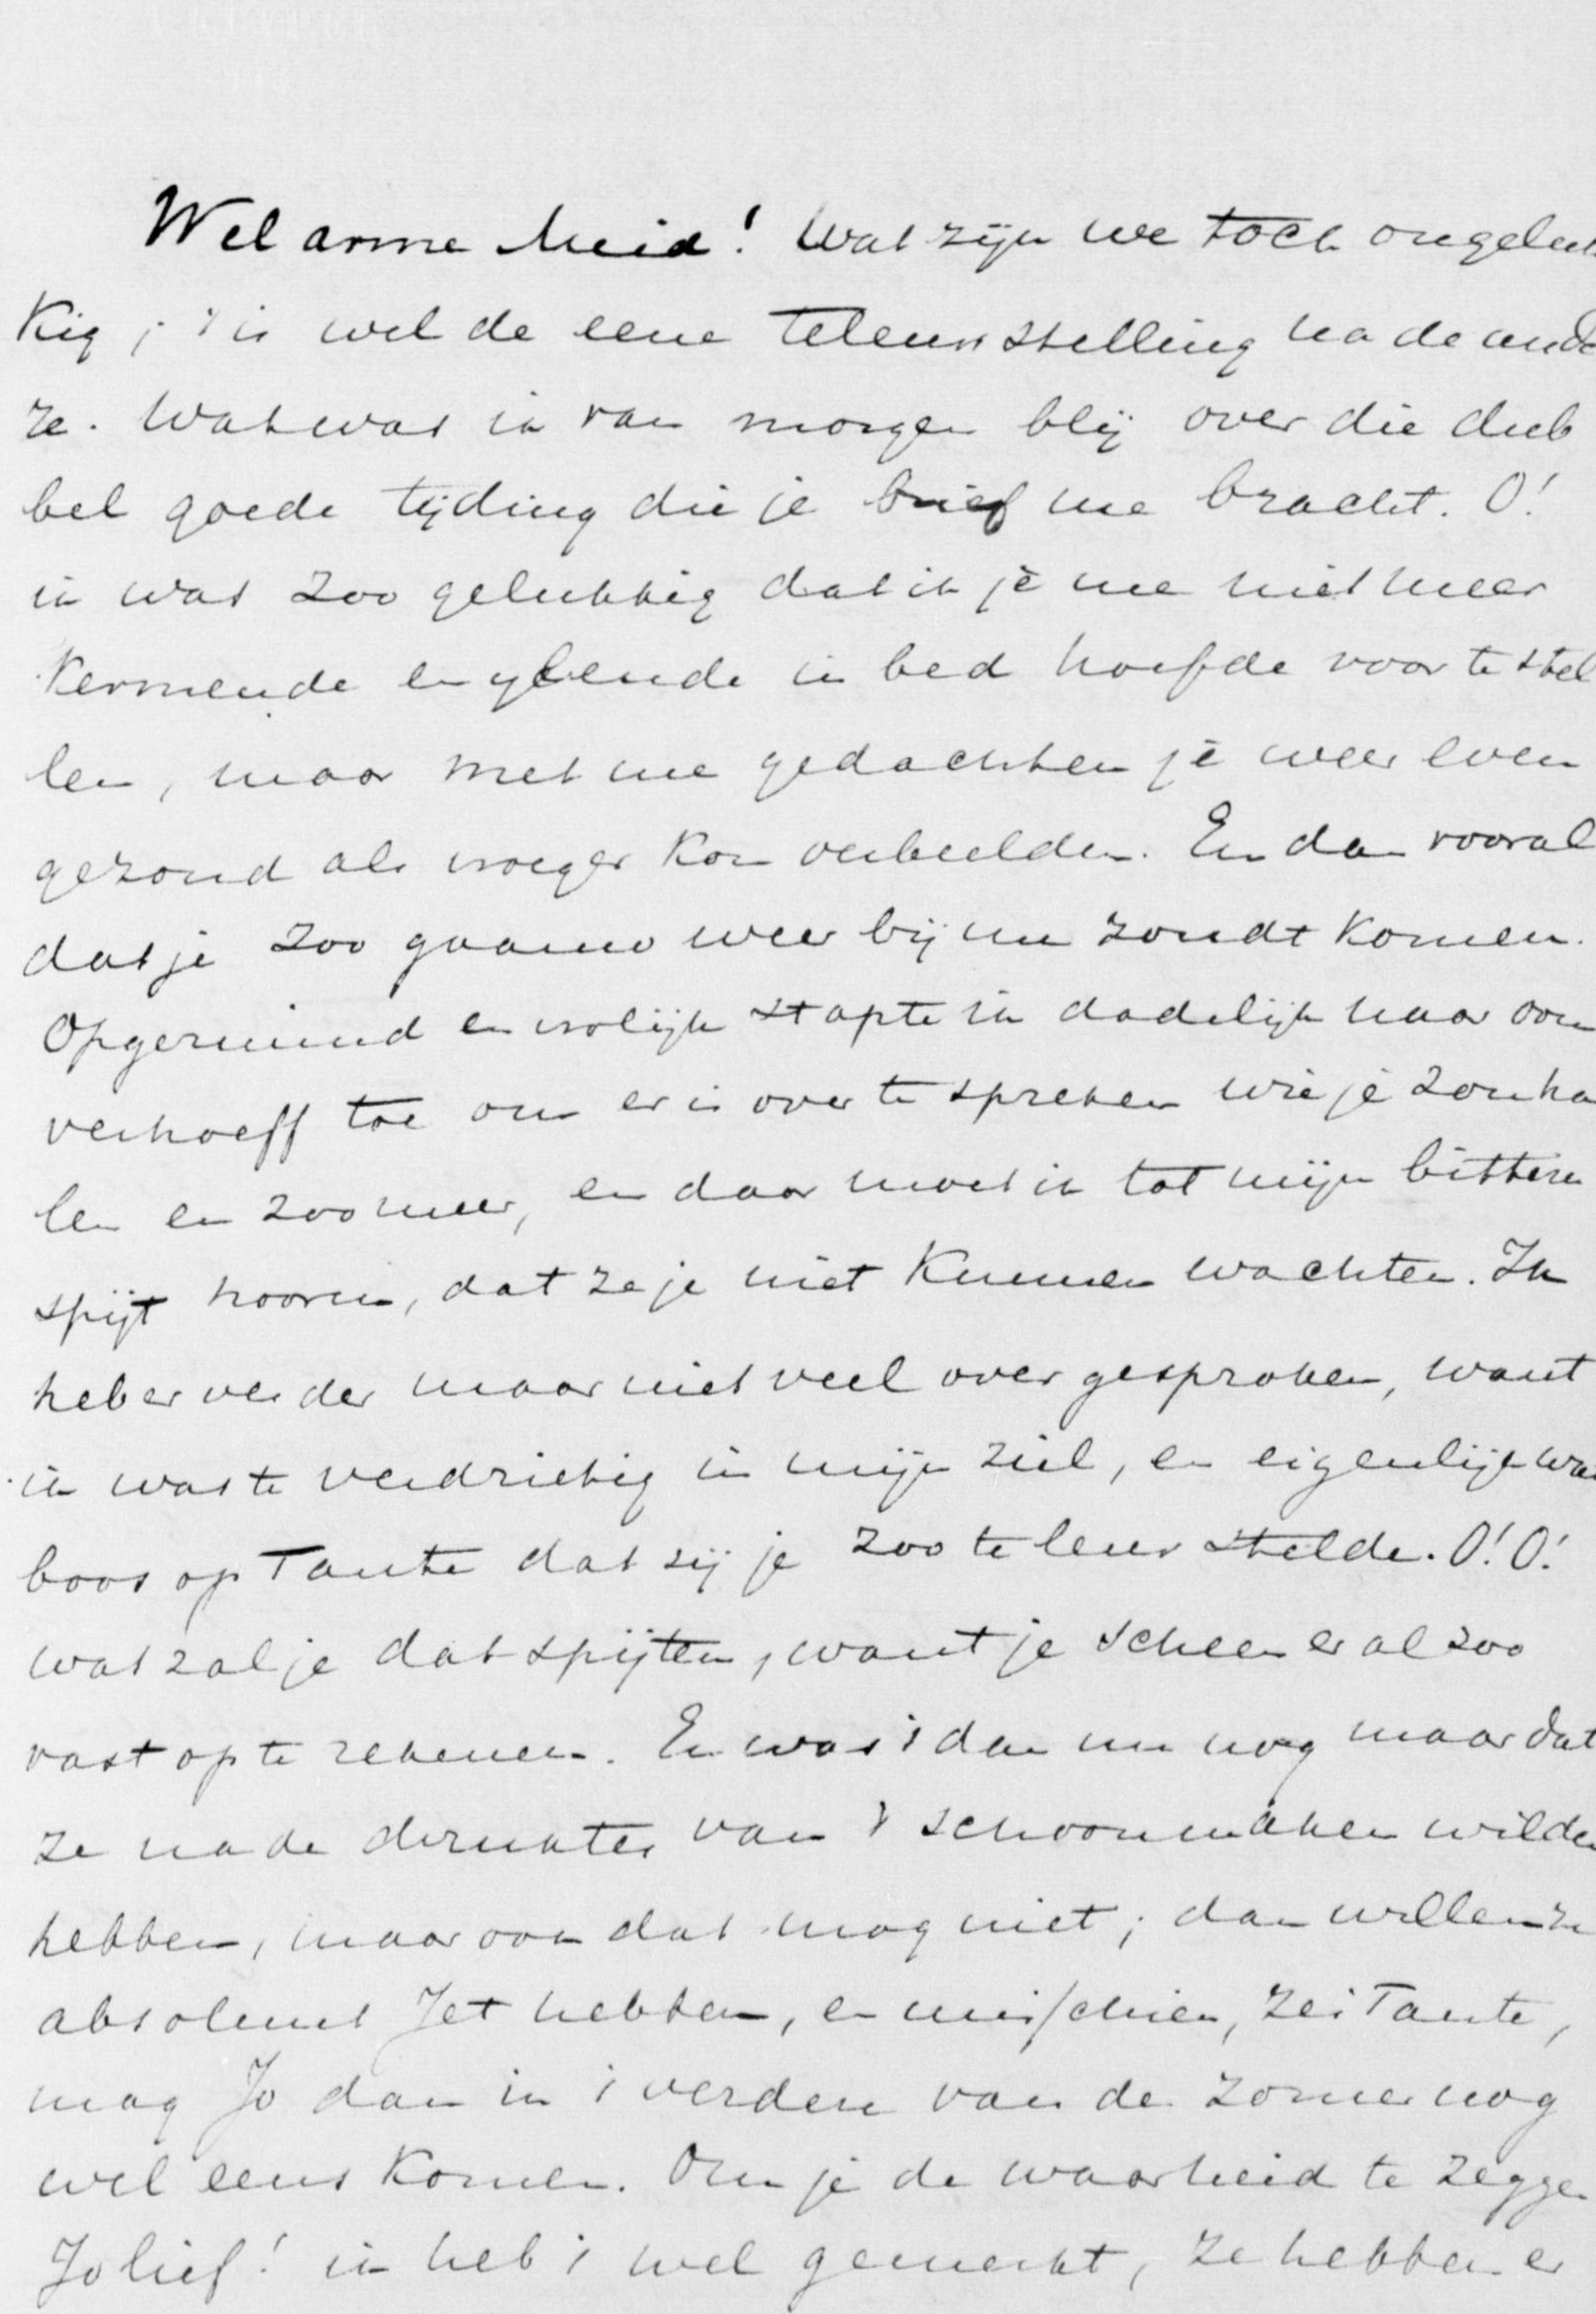 Wel arme Meid! Wat zijn we toch ongeluk
kig; 't is wel de eene teleurstelling na de ande
re. Wat was ik van morgen blij over die dub
bel goede tijding die je brief me bracht. O!
ik was zoo gelukkig dat ik je me niet meer
kermende en ylende in bed hoefde voor te stel
len, maar met me gedachten je weer even
gezond als vroeger kon verbeelden. En dan vooral
dat je zoo gaarne weer bij me zoudt komen.
Opgeruimd en vrolijk stapte ik dadelijk naar oom
verhoeff toe om er is over te spreken wie je zou ha
len en zoo meer, en daar moest ik tot mijn bittere
spijt hooren, dat ze je niet kunnen wachten. Ik
heb er verder maar niet veel over gesproken, want
ik was te verdrietig in mijn ziel, en eigenlijk was
boos op Tante dat zij je zoo te leur stelde. O! O!
wat zal je dat spijten, want je scheen er al zoo
vast op te rekenen. En was 't dan nu nog maar dat
ze na de drukte van 't schoonmaken wilden
hebben, maar ook dat mag niet; dan willen ze
absoluut Jet hebben, en misschien, zei Tante,
mag Jo dan in 't verdere van de zomer nog
wel eens komen. Om je de waarheid te zeggen
Jo lief! ik heb 't wel gemerkt, ze hebben er